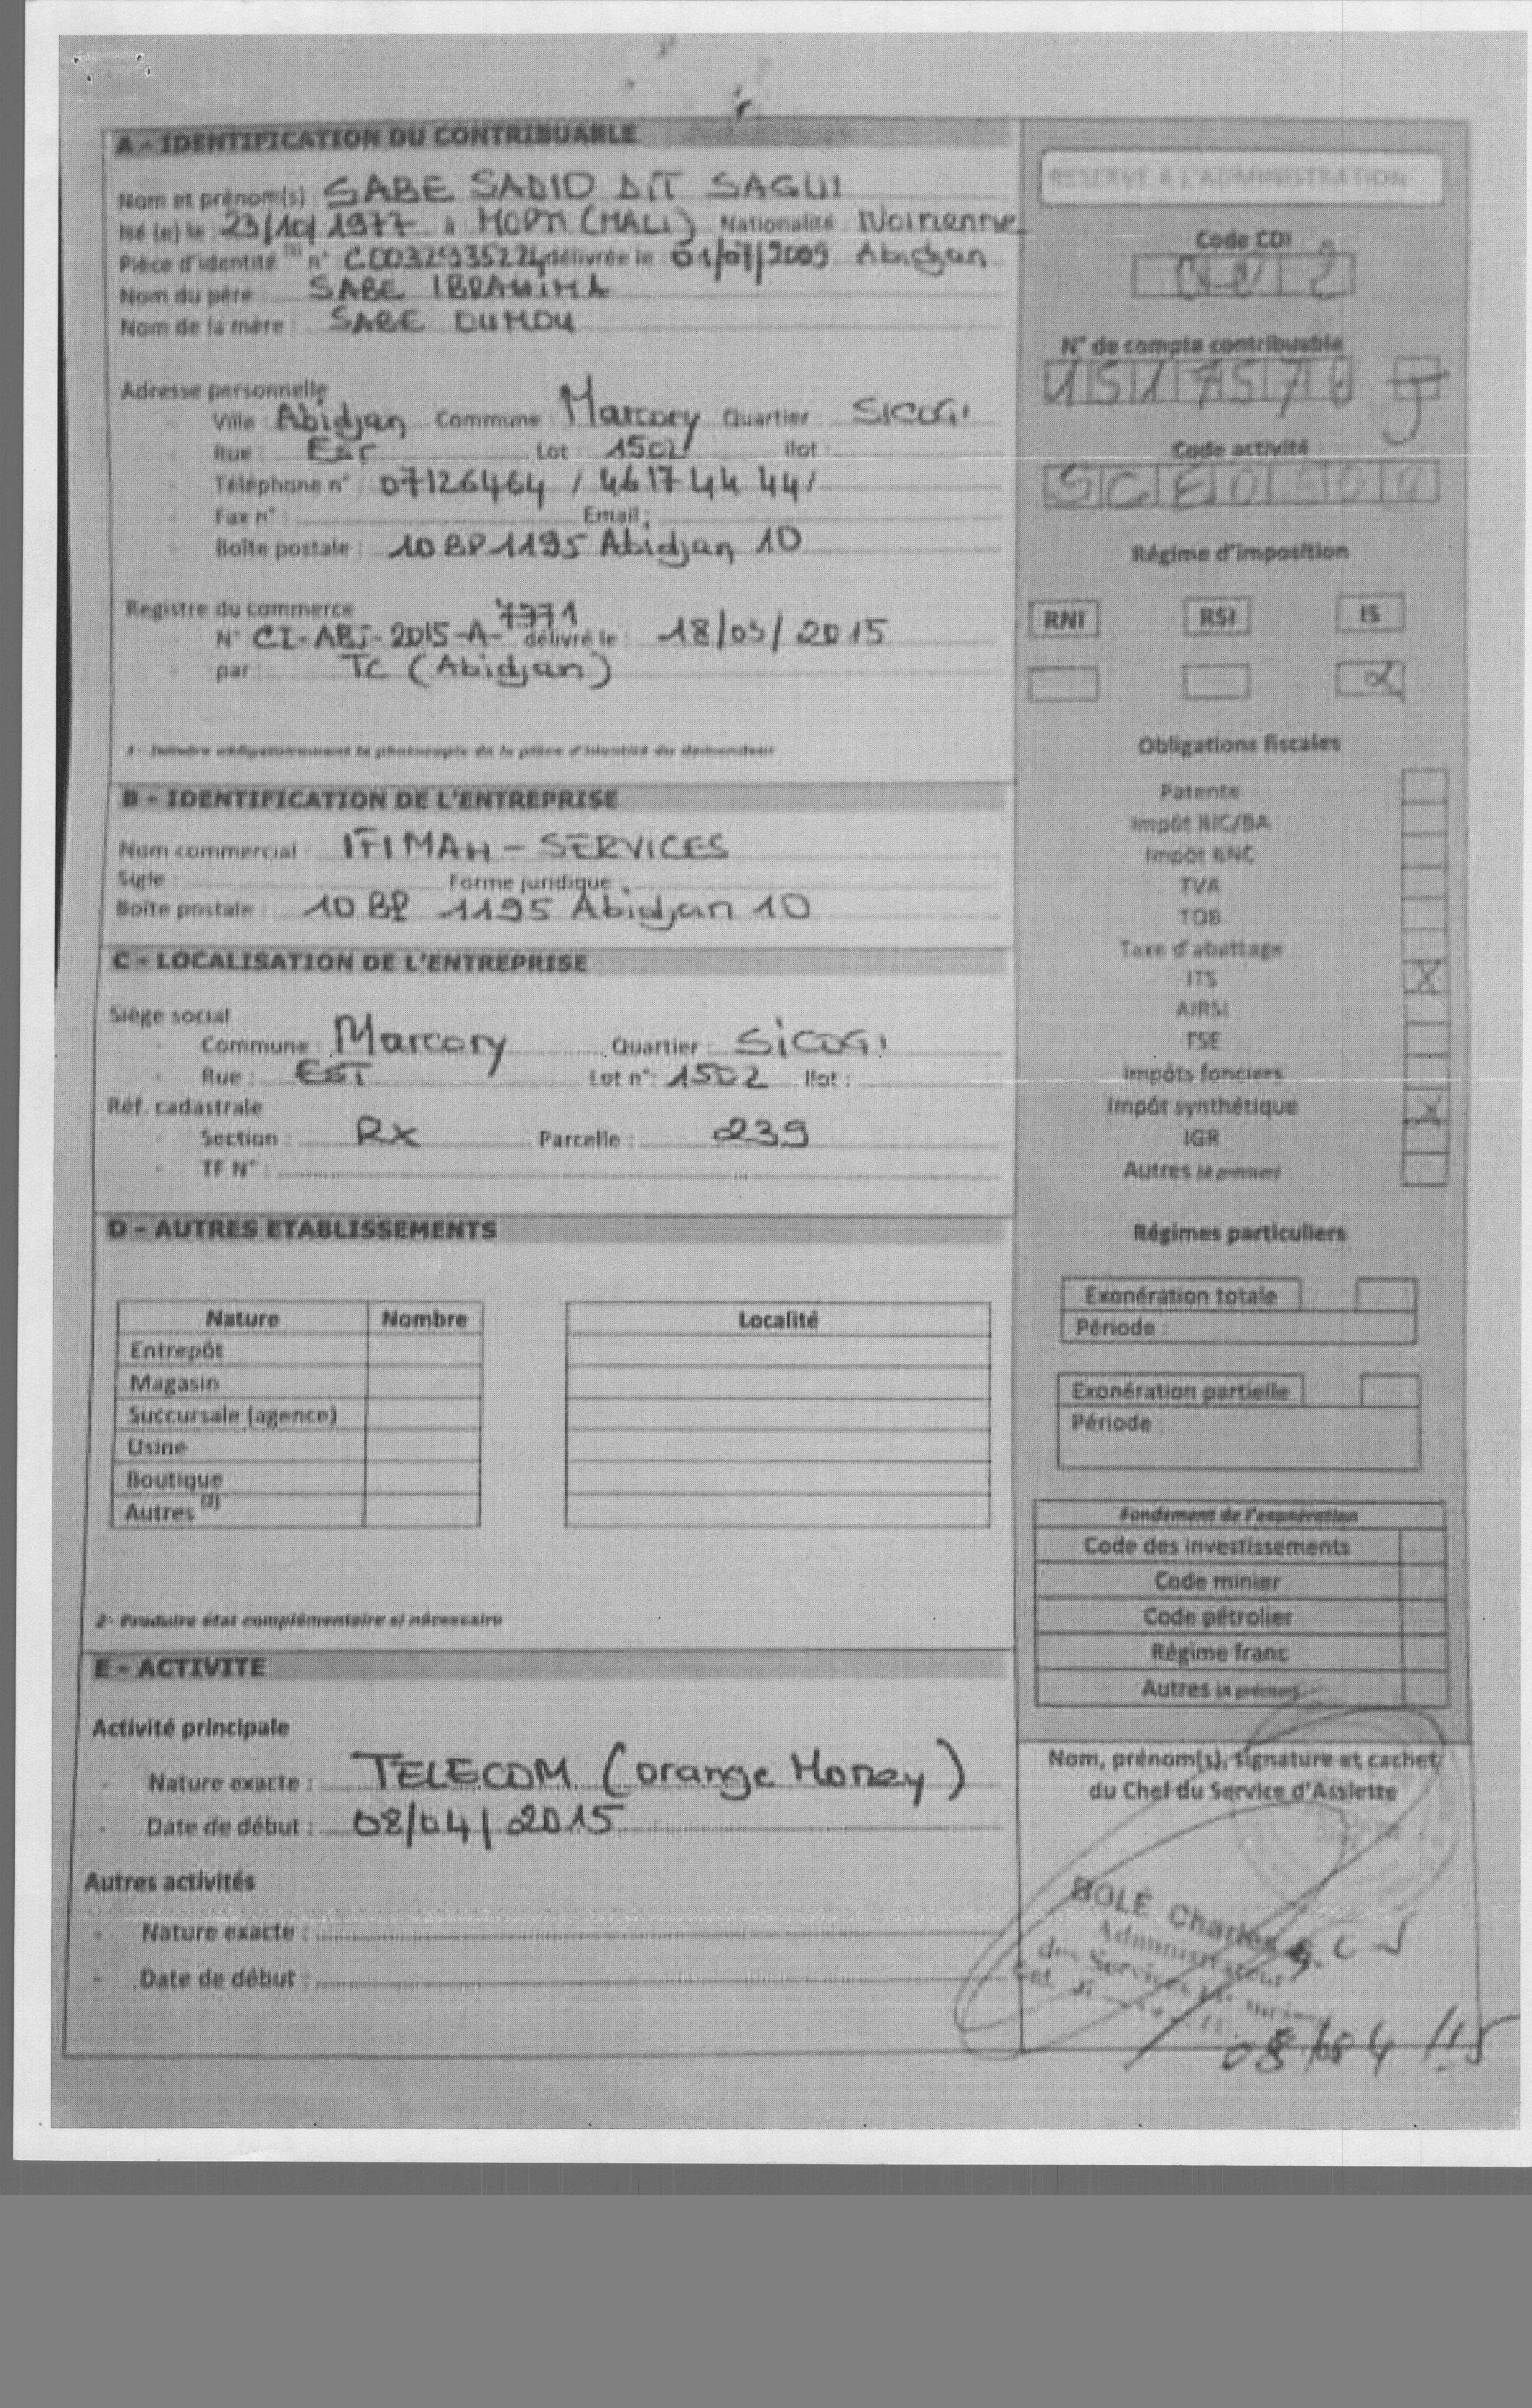 A - IDENTIFICATION DU CONTRIBUABLE
Nom et prénom(s) : SABE SADIO DIT SAGUI
Né (e) le : 23/10/1977 à MOPTI (MALI) Nationalité Ivoirienne
Pièce d'identité (1) n° C0032935224 délivrée le 01/07/2009 Abidjan
Nom du père : SABE IBRAHIMA
Nom de la mère : SABE OUMOU
Adresse personnelle
- Ville : Abidjan Commune : Marcory Quartier : SICOGI
- Rue : EST Lot : 1502 Ilot :
- Téléphone n° : 07126464 / 46174444/
- Fax n° : Email :
- Boîte postale : 10 BP 1195 Abidjan 10
Registre du commerce
N° CI-ABJ-2015-A-7371 délivré le : 18/03/2015
par : TC (Abidjan)
1- Joindre obligatoirement la photocopie de la pièce d'identité du demandeur
B - IDENTIFICATION DE L'ENTREPRISE
Nom commercial : IFIMAH - SERVICES
Sigle : Forme juridique :
Boîte postale : 10 BP 1195 Abidjan 10
C - LOCALISATION DE L'ENTREPRISE
Siège social
- Commune : Marcory Quartier : SICOGI
- Rue : EST Lot n° : 1502 Ilot :
Réf. cadastrale
- Section : RX Parcelle : 239
- TF N° :
D - AUTRES ETABLISSEMENTS
Nature Nombre Localité
Entrepôt
Magasin
Succursale (agence)
Usine
Boutique
Autres (2)
2- Produire état complémentaire si nécessaire
E - ACTIVITE
Activité principale
- Nature exacte : TELECOM (orange Money)
- Date de début : 08/04/2015
Autres activités
- Nature exacte :
- Date de début :
RESERVE A L'ADMINISTRATION
Code CDI
N° de compte contribuable
1517570 J
Code activité
Régime d'imposition
RNI RSI IS
Obligations fiscales
Patente
Impôt BIC/BA
Impôt BNC
TVA
TOB
Taxe d'abattage
ITS X
AIRSI
TSE
Impôts fonciers
Impôt synthétique X
IGR
Autres (à préciser)
Régimes particuliers
Exonération totale
Période :
Exonération partielle
Période :
Fondement de l'exonération
Code des investissements
Code minier
Code pétrolier
Régime franc
Autres (à préciser)
Nom, prénom(s), signature et cachet
du Chef du Service d'Assiette
BOLÉ Charles
Administrateur
des Services
08/04/15